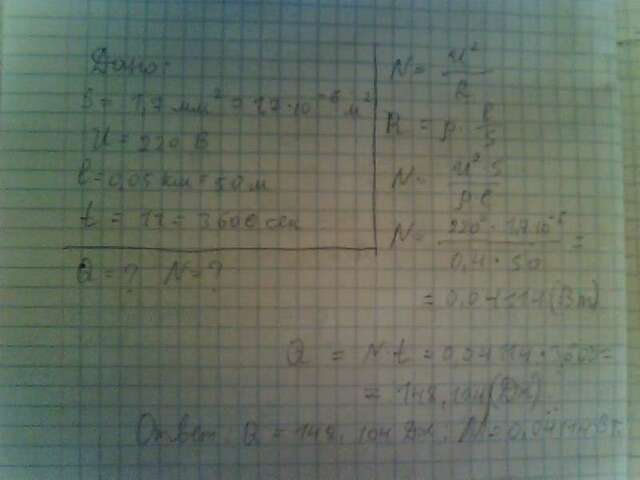 Дано:
S = 1,7 мм² = 1,7·10⁻⁶ м²
U = 220 В
l = 0,05 км = 50 м
t = 1ч = 3600 сек
Q = ? N = ?
N = U²/R
R = ρ · l/S
N = U² S/ρ l
N = 220² · 1,7·10⁻⁶/0,4 · 50 =
= 0,04114 (Вт)
Q = N t = 0,04114 · 3600 =
= 148,104 (Дж)
Ответ: Q = 148,104 Дж; N = 0,04114 Вт.